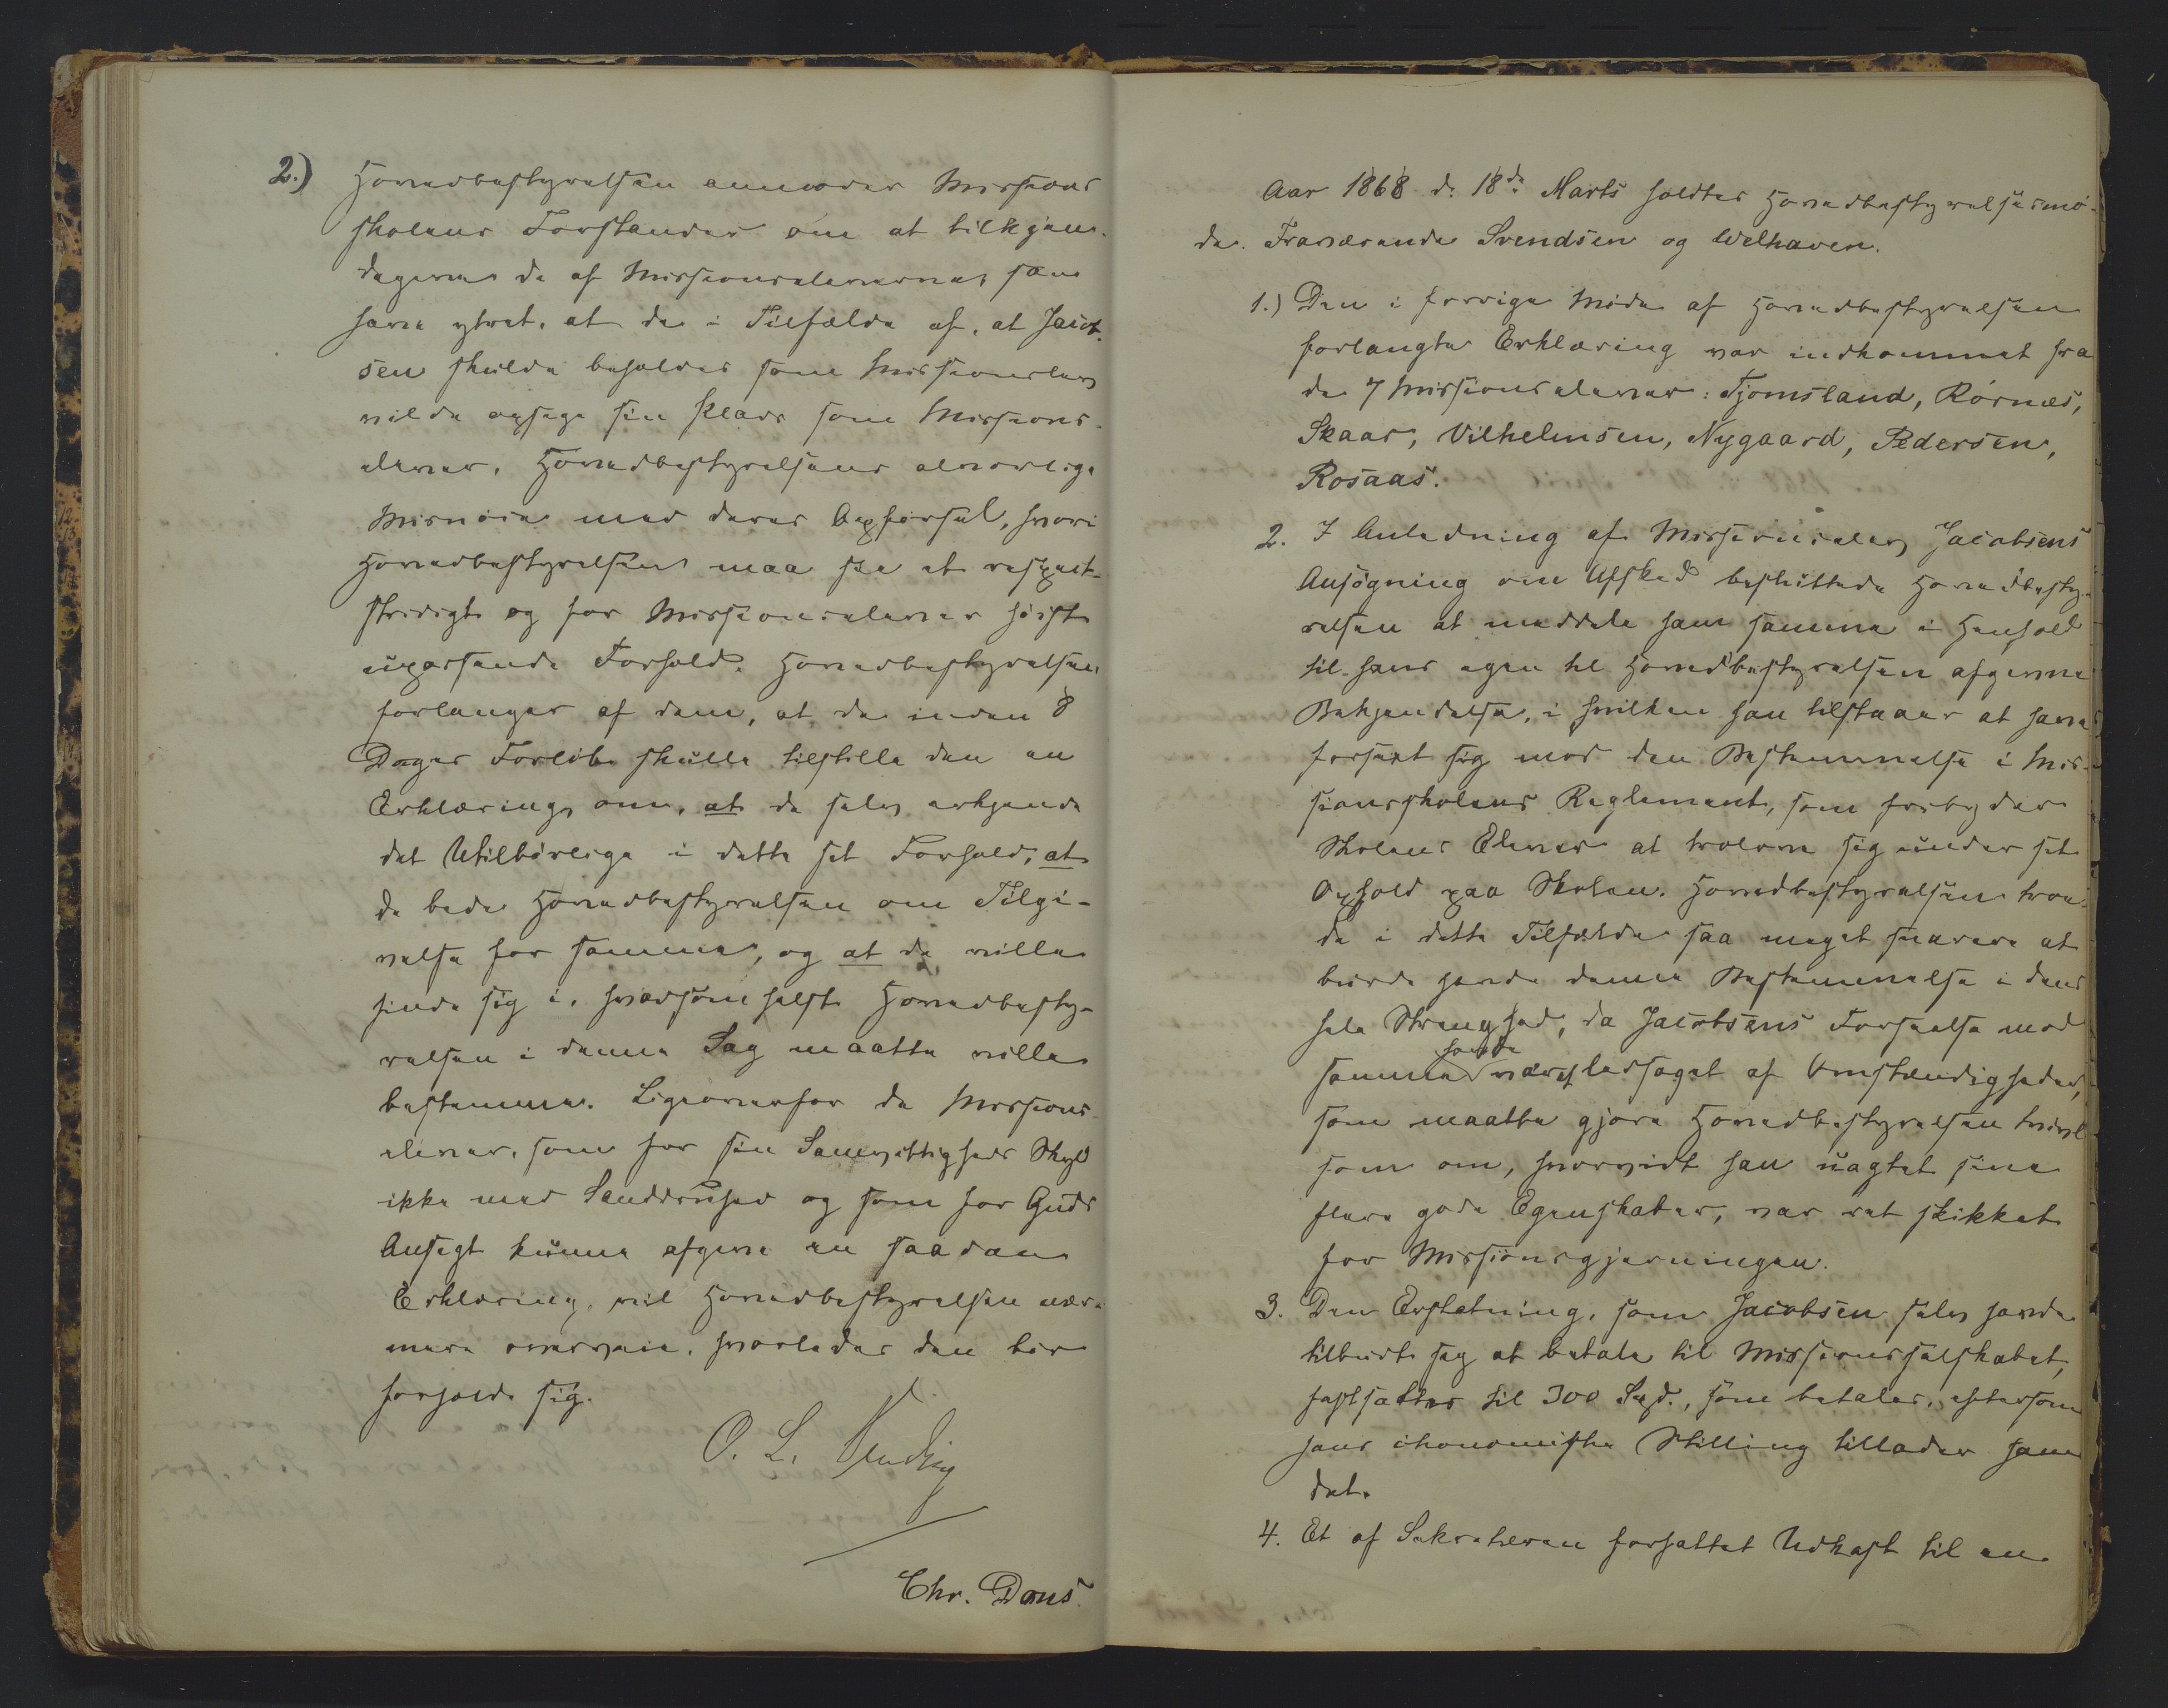 2.) Hovedbestyrelsen anmoder Missions
skolens Forstander om at tilkjende-
degive de af Missionseleverne, som
have ytret, at de i Tilfælde af, at Jacob-
sen skulde beholdes som Missionselev
vilde opsige sin Plads som Missions-
elever, Hovedbestyrelsens alvorlige
Misnöie med deres Opförsel, hvori
Hovedbestyrelsen maa see et respect-
stridigt og for Missionselever höist
upassende Forhold. Hovedbestyrelsen
forlanger af dem, at de inden 8
Dages Forløb skulle tilstille den en
Erklæring om, at de selv erkjende
det Utilbörlige i dette sit Forhold, at
de bede Hovedbestyrelsen om Tilgi-
velse for samme, og at de ville
finde sig i, hvadsomhelst Hovedbesty-
relsen i denne Sag maatte ville
bestemme. Ligeoverfor de Missions-
elever, som for sin Samvittigheds Skyld
ikke med Sanddruhed og som for Guds
Ansigt kunne afgive en saadan
Erklæring, vil Hovedbestyrelsen nær-
mere overveie, hvorledes den bör
forholde sig.
O. L.
Chr. Dons
Aar 1868 d. 18de Marts holdtes Hovedbestyrelsesmö-
de. Fraværende Svendsen og Welhaven.
1.) Den i forrige Möde af Hovedbestyrelsen
forlangte Erklæring var indkommet fra
de 7 Missionselever: Tjomsland, Rörnæs,
Skaar, Vilhelmsen, Nygaard, Pedersen,
Rosaas.
2. I Anledning af Missionselev Jacobsens
Ansögning om Afsked besluttede Hovedbesty-
relsen at meddele ham samme i Henhold
til hans egen til Hovedbestyrelsen afgivne
Bekjendelse, i hvilken han tilstaaer at have
forseet sig mod den Bestemmelse i Mis-
sionsskolens Reglement, som forbyder
Skolens Elever at trolove sig under sit
Ophold paa Skolen. Hovedbestyrelsen troe-
de i dette Tilfælde saa meget snarere at
burde hævde denne Bestemmelse i dens
hele Strenghed, da Jacobsens Forseelse mod
samme havde været ledsaget af Omstændigheder,
som maatte gjøre Hovedbestyrelsen tvivl-
som om, hvorvidt han uagtet sine
flere gode Egenskaber, var ret skikket
for Missionsgjerningen.
3. Den Erstatning, som Jacobsen selv havde
tilbudt sig at betale til Missionsselskabet,
fastsattes til 300 Spd., som betales, eftersom
hans ökonomiske Stilling tillader ham
det.
4. Et af Sekretæren forfattet Udkast til en